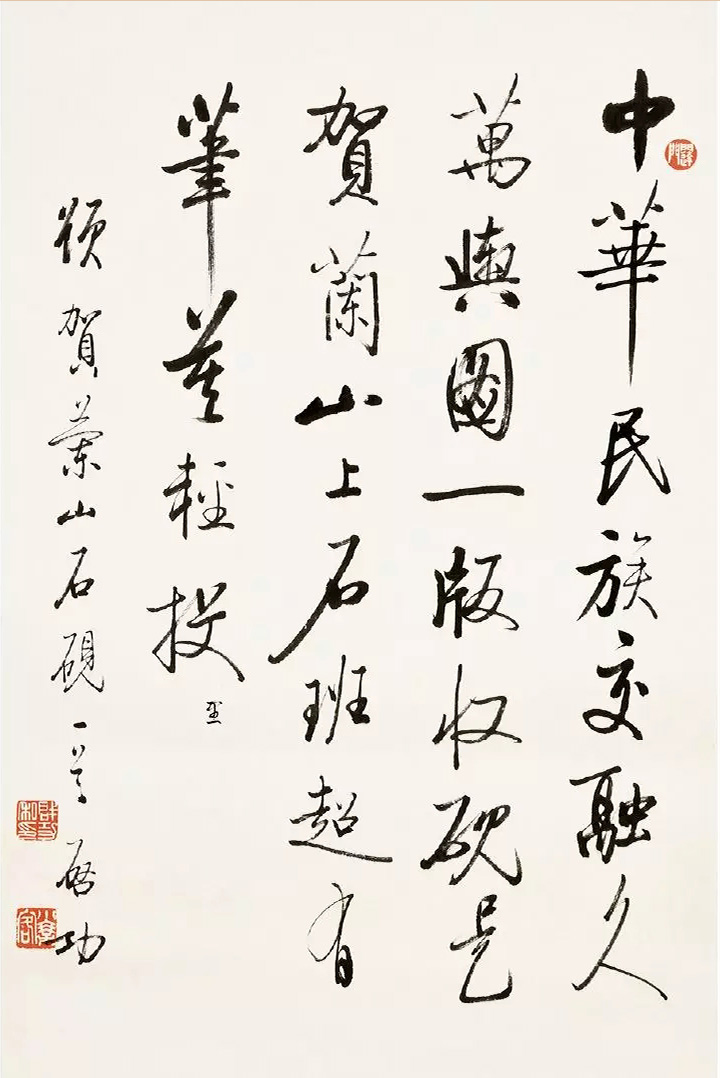 中華民族交融久
萬輿圖一版收硯是
賀蘭山上石班超有
筆莫輕投 里
題賀蘭山石硯一首 啟功